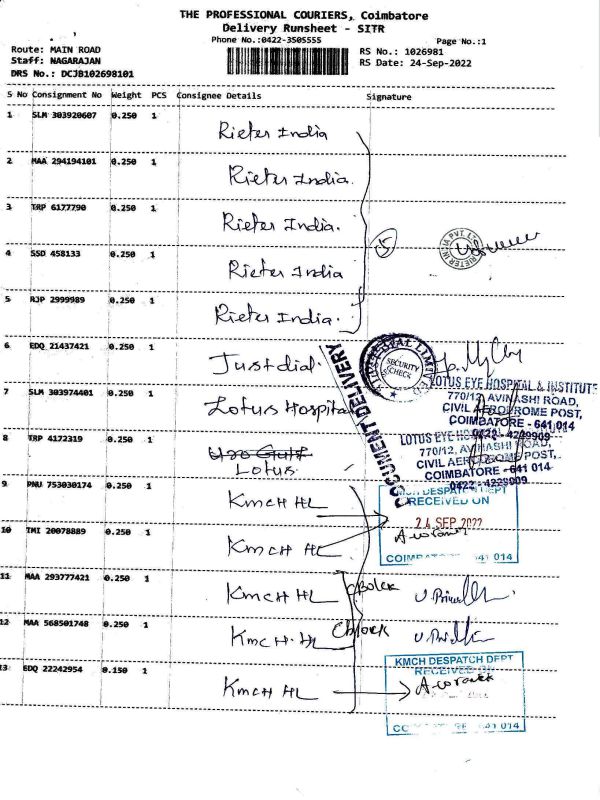 THE PROFESSIONAL COURIERS, Coimbatore
Delivery Runsheet - SITR
Phone No.:0422-3505555
Page No.:1
Route: MAIN ROAD
Staff: NAGARAJAN
DRS No.: DCJB102698101
RS No.: 1026981
RS Date: 24-Sep-2022
S No Consignment No Weight PCS Consignee Details Signature
1 SLM 303920607 0.250 1 Rieter India
2 MAA 294194101 0.250 1 Rieter India.
3 TRP 6177790 0.250 1 Rieter India.
4 SSD 458133 0.250 1 Rieter India
5 RJP 2999989 0.250 1 Rieter India.
5
6 EDQ 21437421 0.250 1 Justdial.
SECURITY CHECK
DOCUMENT DELIVERY
7 SLM 303974401 0.250 1 Lotus Hospital
LOTUS EYE HOSPITAL & INSTITUTE
770/12, AVINASHI ROAD,
CIVIL AERODROME POST,
COIMBATORE - 641 014
0422 - 4229909
8 TRP 4172319 0.250 1 Lotus.
LOTUS EYE
770/12, AVINASHI ROAD,
CIVIL AERODROME POST,
COIMBATORE - 641 014
0422 - 4229909
9 PNU 753030174 0.250 1 KMCH HL
KMCH DESPATCH DEPT
RECEIVED ON
24 SEP 2022
COIMBATORE 641 014
10 TMI 20078889 0.250 1 KMCH HL
11 MAA 293777421 0.250 1 KMCH HL
12 MAA 568501748 0.250 1 KMCH HL C block
13 EDQ 22242954 0.150 1 KMCH HL
KMCH DESPATCH DEPT
RECEIVED ON
641 014